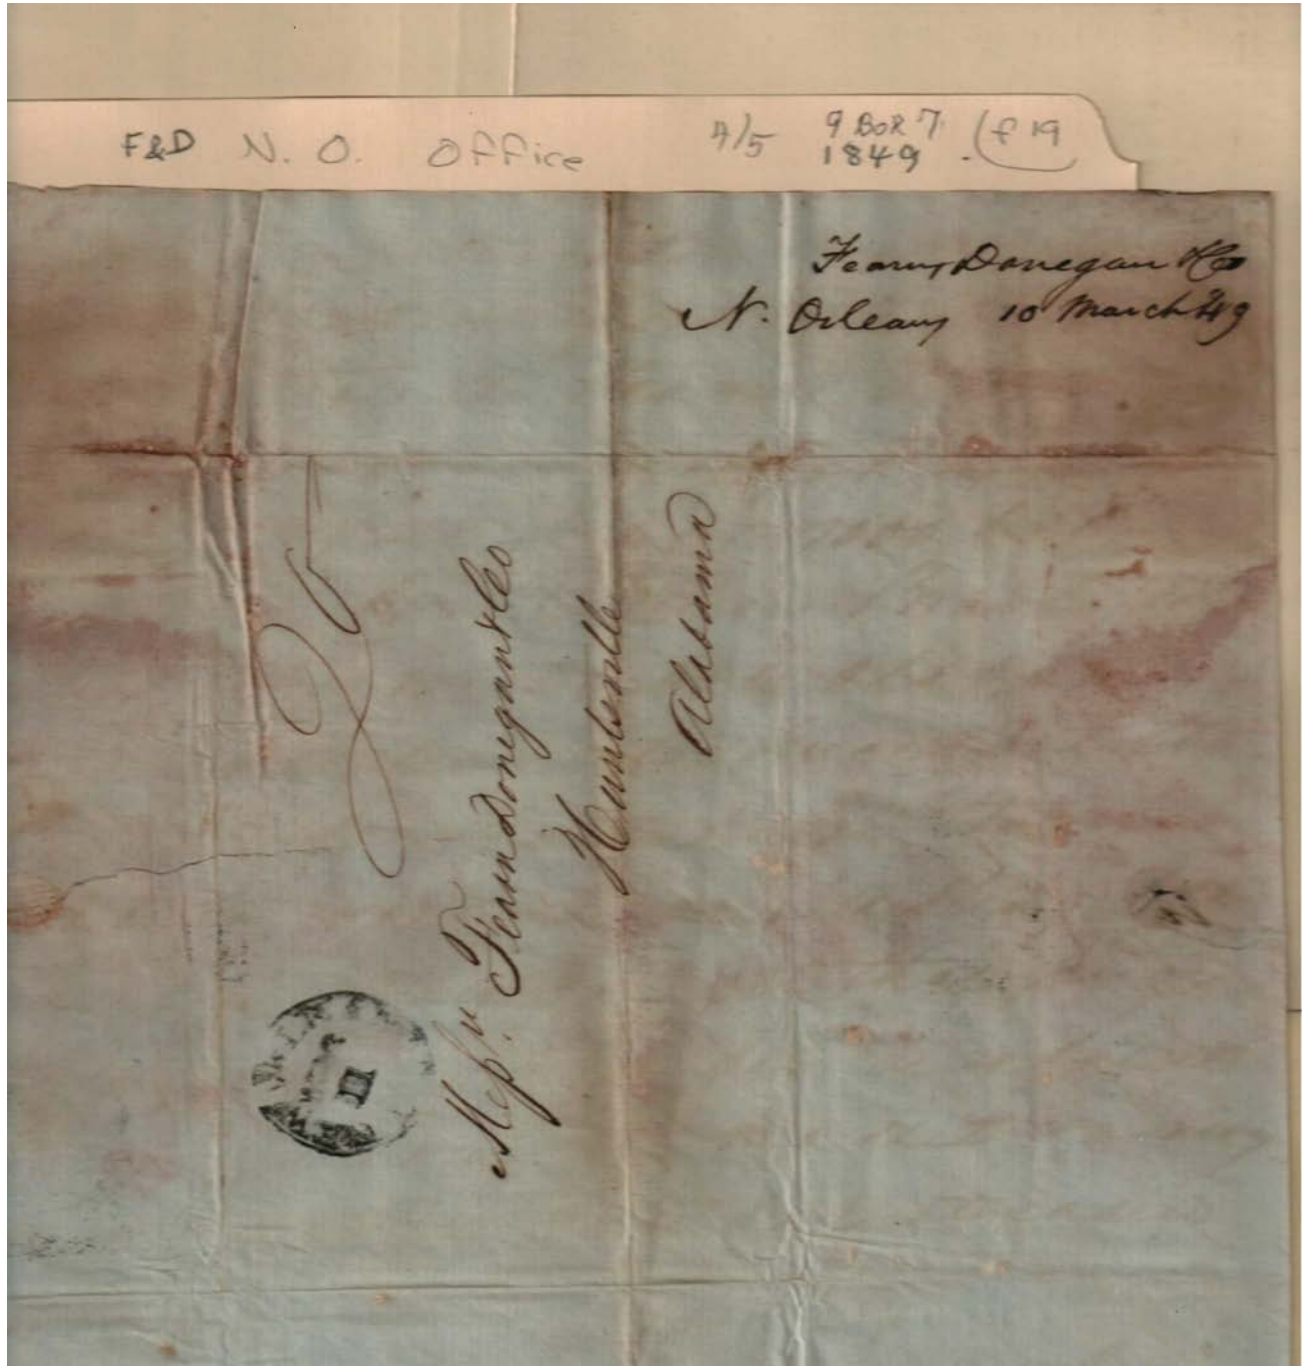 F&D N. O. Office 4/5 9 BOX 7 (f 19
1849
Fearn, Donegan & Co
N. Orleans 10 March 49
Messrs. Fearn Donegan & Co
Huntsville
Alabama